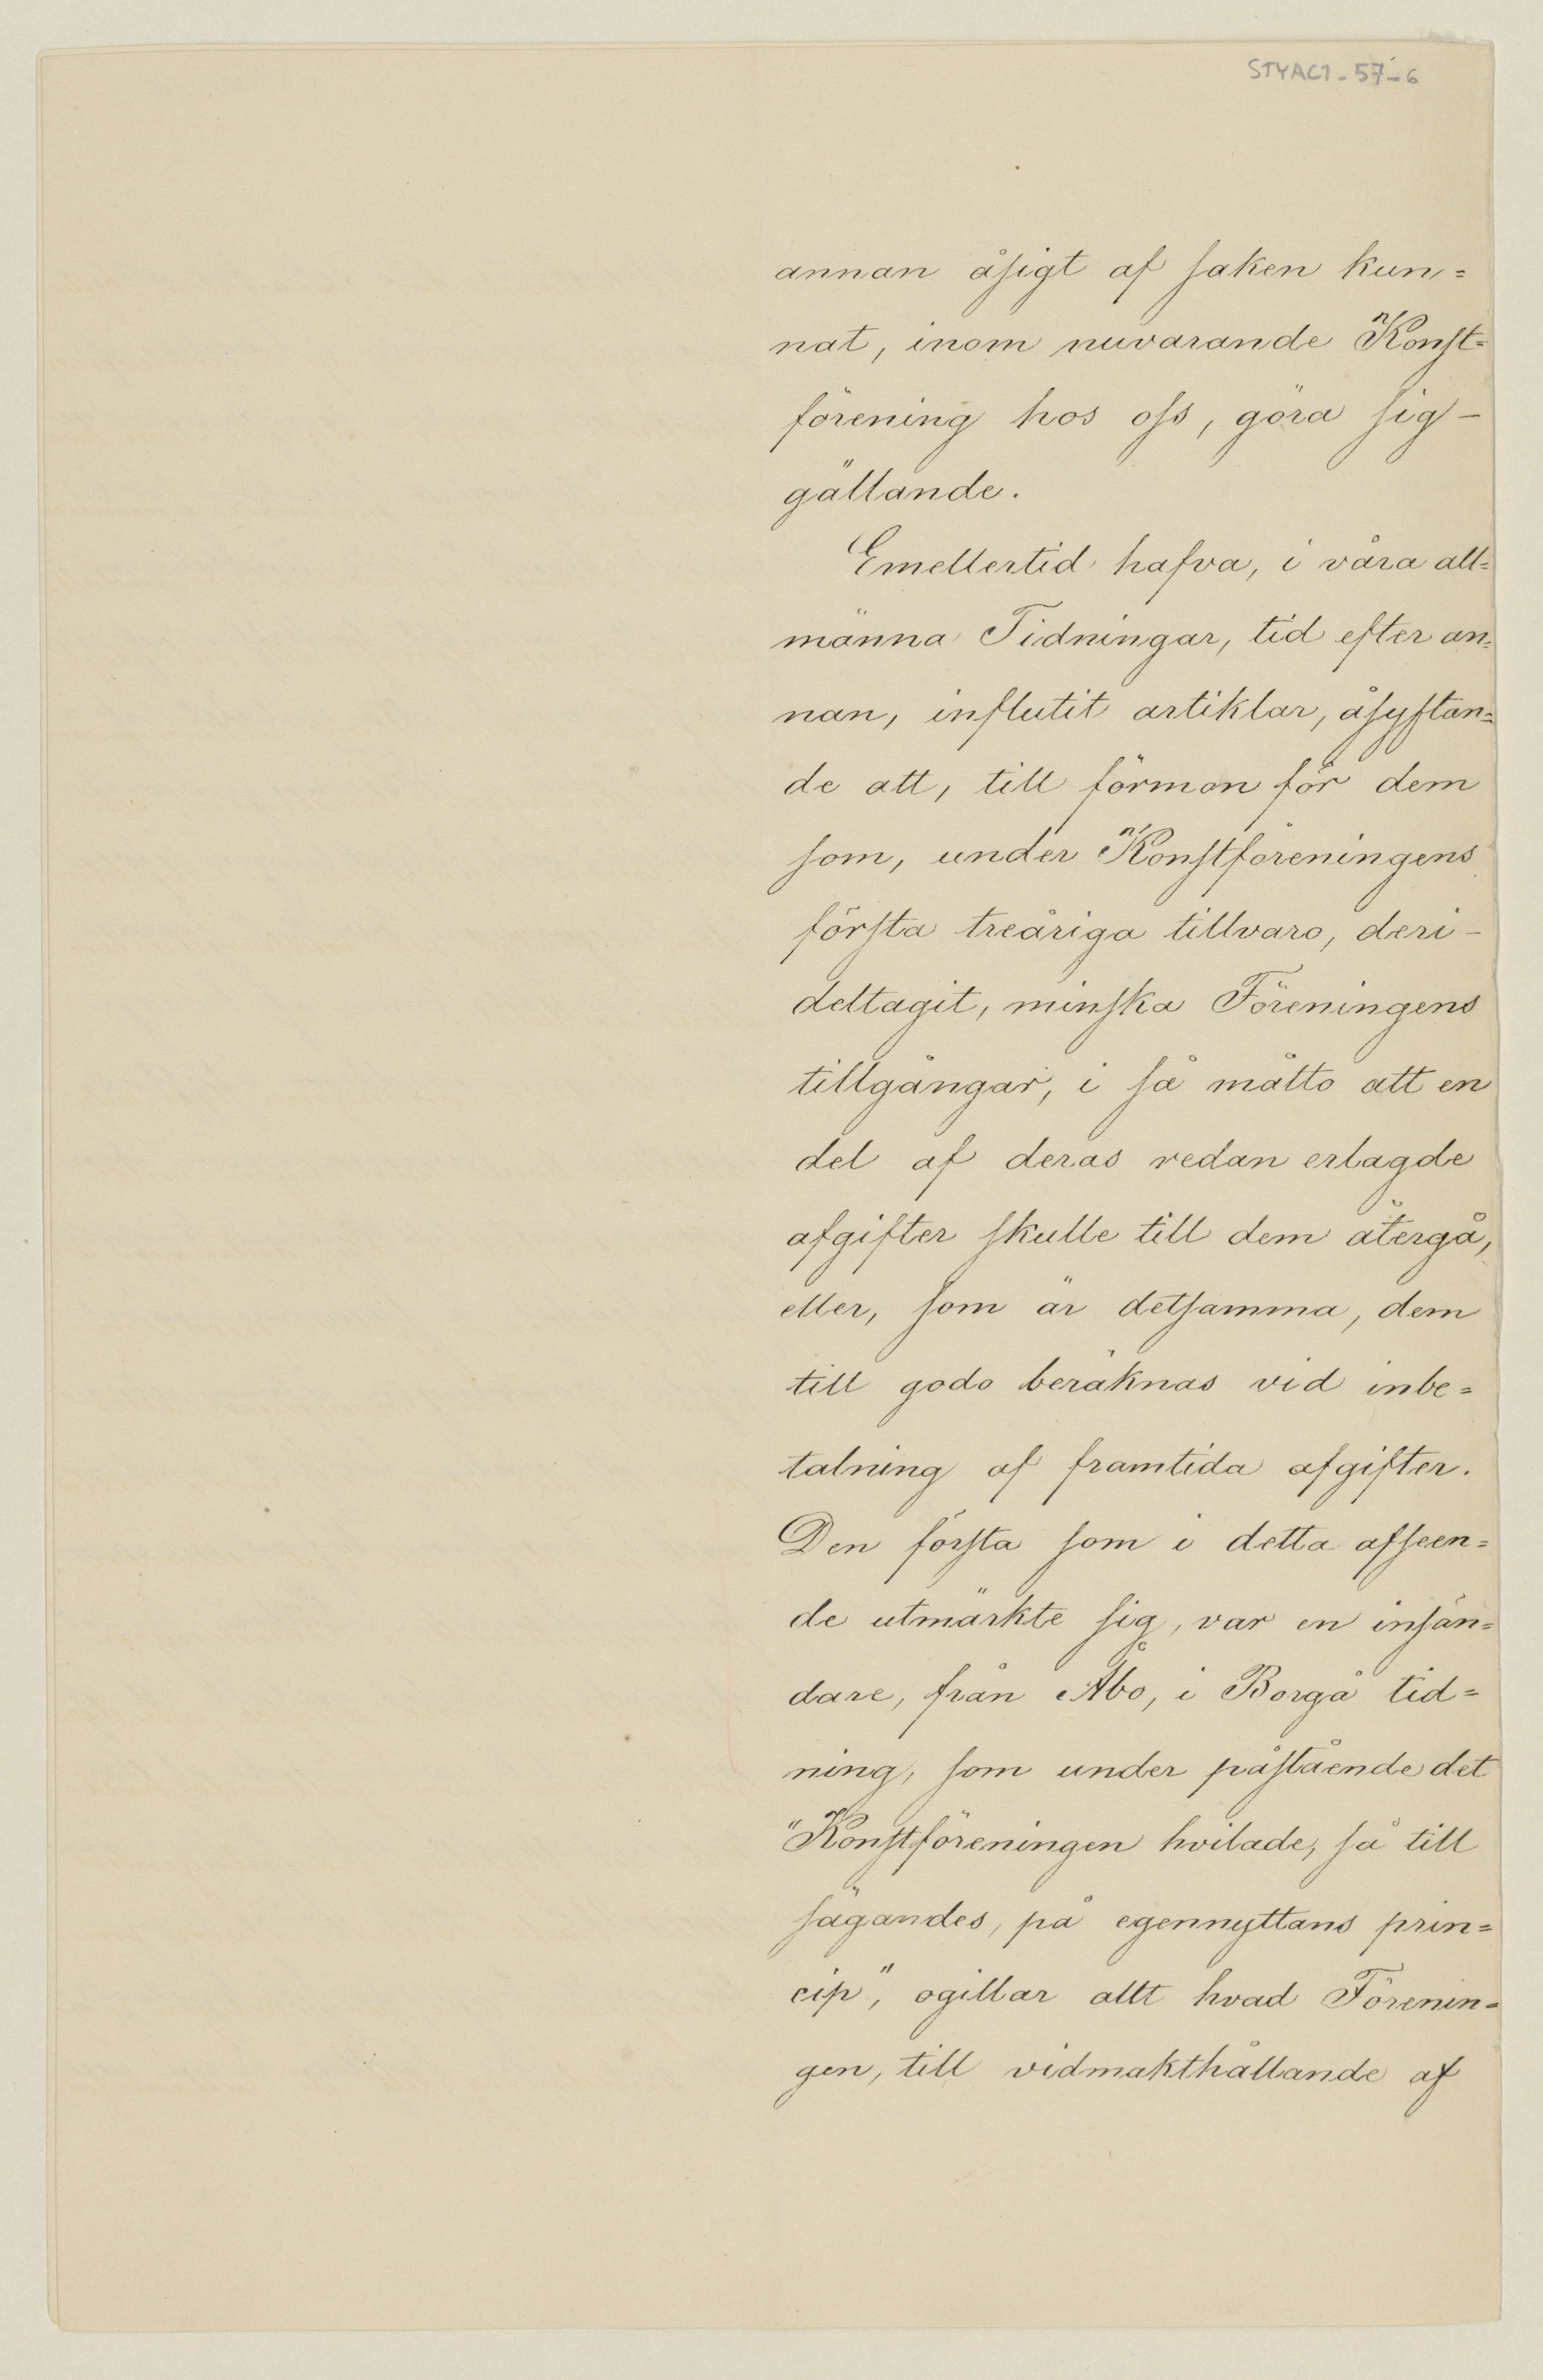 STYAC1-57-6
annan åsigt af saken kun=
nat, inom nuvarande Konst=
förening hos oss, göra sig-
gällande.
Emellertid hafva, i våra all=
männa Tidningar, tid efter an=
nan, influtit artiklar, åsyftan=
de att, till förmon för dem
som, under Konstföreningens
första treåriga tillvaro, deri-
deltagit, minska Föreningens
tillgångar, i så måtto att en
del af deras redan erlagde
afgifter skulle till dem återgå,
eller, som är detsamma, dem
till godo beräknas vid inbe=
talning af framtida afgifter.
Den första som i detta afseen=
de utmärkte sig, var en insän=
dare, från Åbo, i Borgå tid=
ning, som under påstående det
"Konstföreningen hvilade, så till
sägandes, på egennyttans prin=
cip", ogillar allt hvad Förenin=
gen, till vidmakthållande af